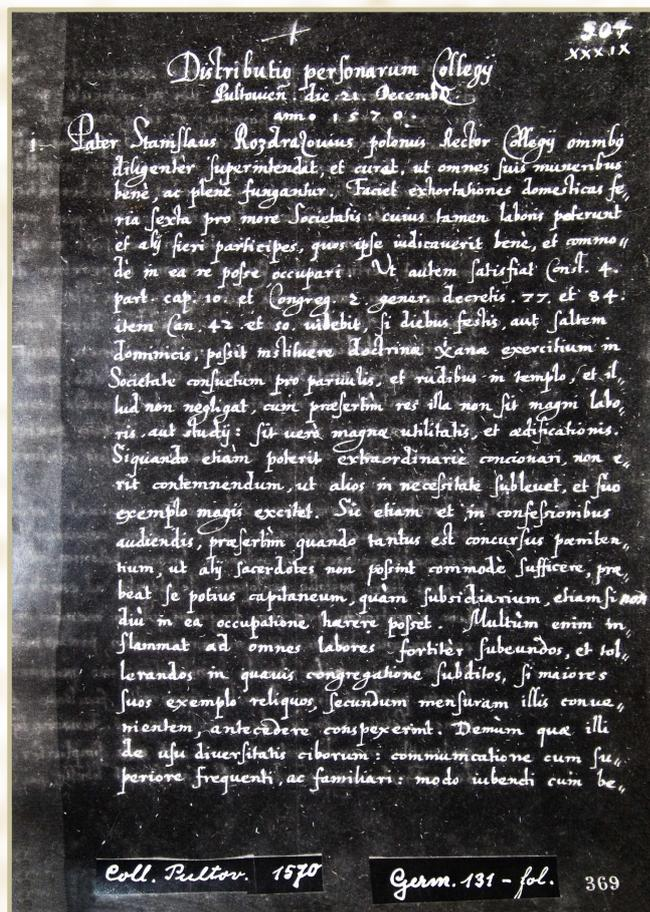 504
XXXIX
Distributio personarum Collegij
Pultovien. die 21. Decemb
anno 1570.
1. Pater Stanislaus Rozdrazouius polonus Rector Collegij omnibq
diligenter superintendat, et curat, ut omnes suis muneribus
bene, ac plene fungantur. Faciet exhortationes domesticas fe„
ria sexta pro more Societatis: cuius tamen laboris poterunt
et alij fieri participes, quos ipse iudicauerit benè, et commo„
dè in ea re posse occupari. Ut autem satisfiat Const. 4.
part. cap. 10. et Congreg. 2. gener. decretis. 77. et 84.
item Can. 42 et 50. uidebit, si diebus festis, aut saltem
dominicis, possit instituere doctrinæ xanæ exercitium in
Societate consuetum pro paruulis, et rudibus in templo, et il„
lud non negligat, cum præsertim res illa non sit magni labo„
ris, aut studij: sit uerò magnæ utilitatis, et ædificationis.
Siquando etiam poterit extraordinariè concionari, non e„
rit contemnendum, ut alios in necessitate subleuet, et suo
exemplo magis excitet. Sic etiam et in confessionibus
audiendis, præsertim quando tantus est concursus pæniten„
tium, ut alij sacerdotes non possint commodè sufficere, præ„
beat se potius capitaneum, quàm subsidiarium, etiam si non
diù in ea occupatione hærere posset. Multùm enim in„
flammat ad omnes labores fortitèr subeundos, et tol„
lerandos in quauis congregatione subditos, si maiores
suos exemplo reliquos, secundum mensuram illis conue„
nientem, antecedere conspexerint. Demùm quæ illi
de usu diuersitatis ciborum: communicatione cum su„
periore frequenti, ac familiari: modo iubendi cum be„
Coll. Pultov. 1570
Germ. 131 - fol. 369